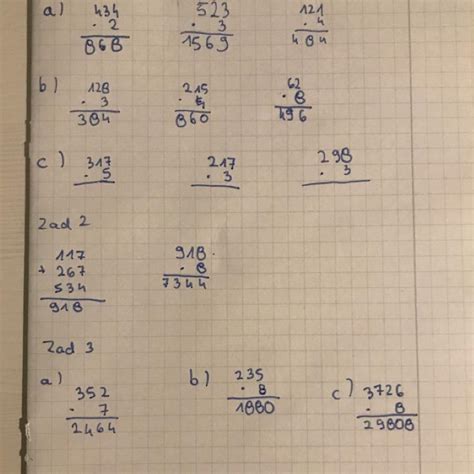 a) 434 523 121
· 2 · 3 · 4
868 1569 484
b) 128 215 62
· 3 · 4 · 8
384 860 496
c) 317 217 298
· 5 · 3 · 3
Zad 2
117 918
+ 267 · 8
534 7344
918
Zad 3
a) 352 b) 235 c) 3726
· 7 · 8 · 8
2464 1880 29808